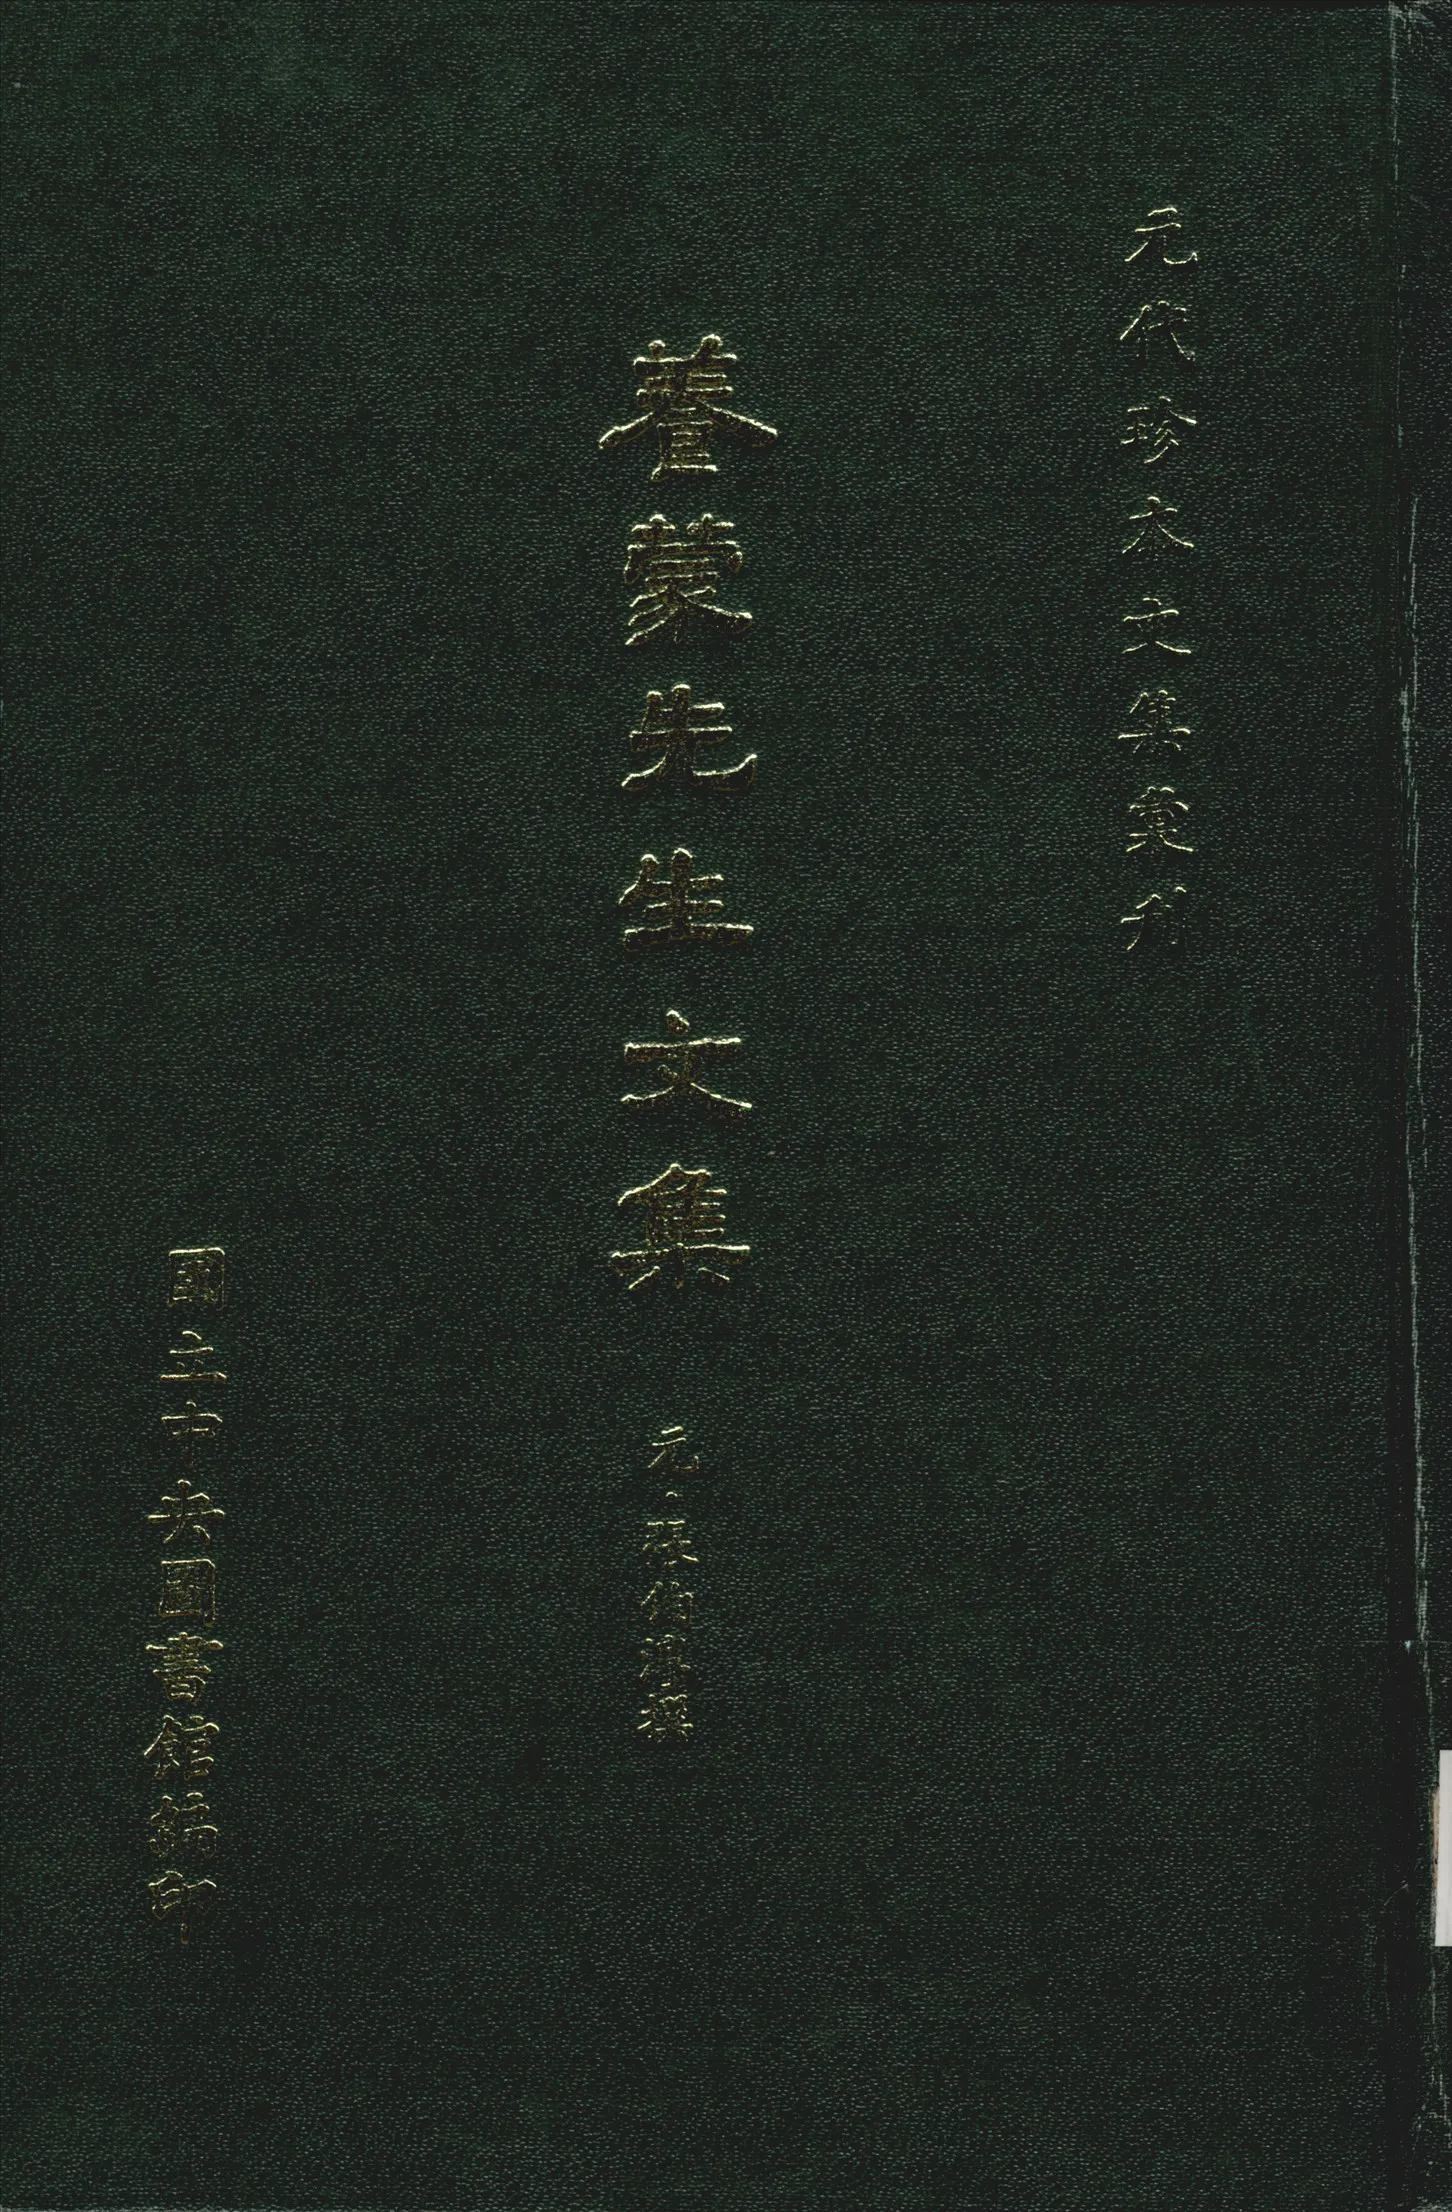 元代珍本文集彙刊
養蒙先生文集
元・張伯淳撰
國立中央圖書館編印